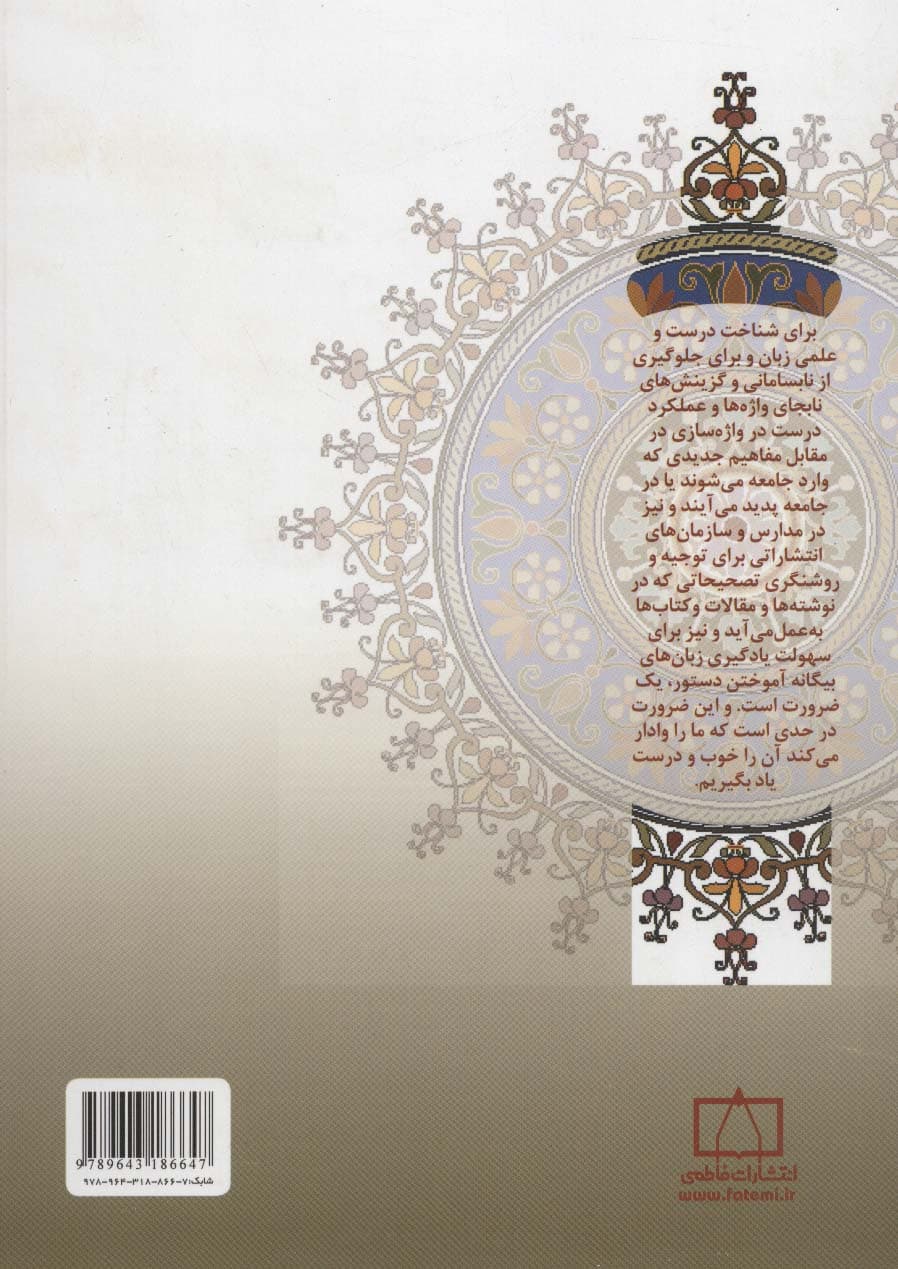 برای شناخت درست و
علمی زبان و برای جلوگیری
از نابسامانی و گزینش‌های
نابجای واژه‌ها و عملکرد
درست در واژه‌سازی در
مقابل مفاهیم جدیدی که
وارد جامعه می‌شوند یا در
جامعه پدید می‌آیند و نیز
در مدارس و سازمان‌های
انتشاراتی برای توجیه و
روشنگری تصحیحاتی که در
نوشته‌ها و مقالات وکتاب‌ها
به‌عمل‌می‌آید و نیز برای
سهولت یادگیری زبان‌های
بیگانه آموختن دستور، یک
ضرورت است. و این ضرورت
در حدی است که ما را وادار
می‌کند آن را خوب و درست
یاد بگیریم.
9 789643 186647
شابک: ۹۷۸-۹۶۴-۳۱۸-۸۶۶-۷
انتشارات فاطمی
www.fatemi.ir